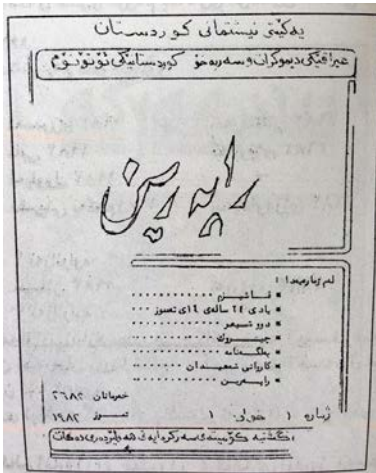 یەکێتی نیشتمانی کوردستان
عیراقێکی دیموکرات و سەربەخۆ کوردستانێکی ئۆتۆنۆم
ڕاپەڕین
لەم ژمارەیەدا:
فاشیزم
یادی ٢٤ ساڵەی ١٤ی تەموز
دوو شیعر
چیرۆک
بەڵگەنامە
کاروانی شەهیدان
ڕاپەڕین
خەرمانان ٢٦٨٢
ژمارە ١ خولی ١ تەموز ١٩٨٢